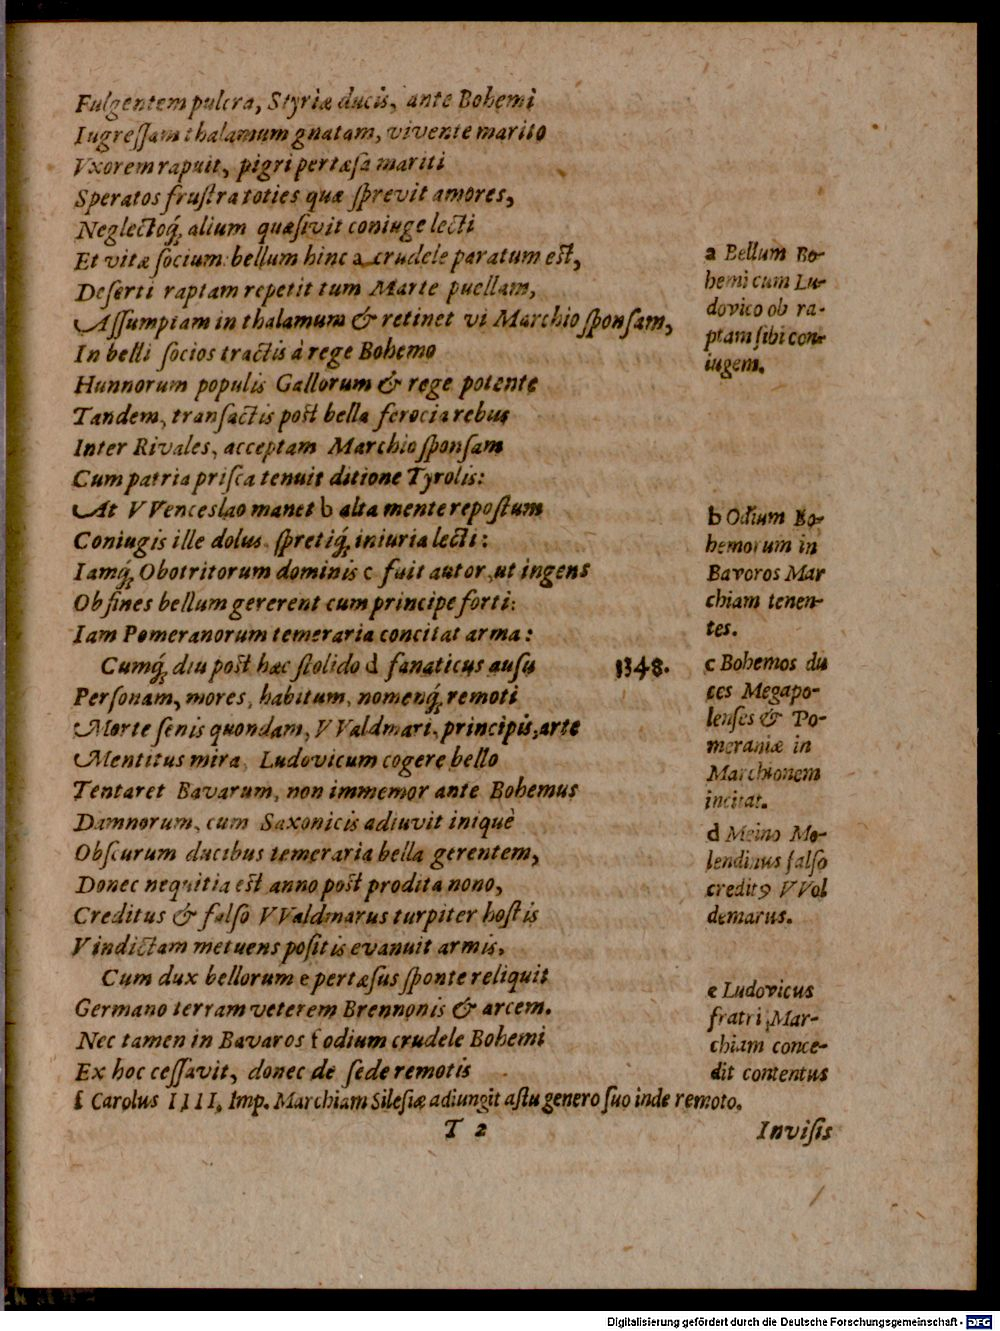 Fulgentem pulcra, Styriæ ducis, ante Bohemi
Iugreſſam thalamum gnatam, vivente marito
Vxorem rapuit, pigri pertæſa mariti
Speratos fruſtra toties quæ ſprevit amores,
Neglectoq́; alium quæſivit coniuge lecti
Et vitæ ſocium: bellum hinc a crudele paratum eſt,
Deſerti raptam repetit tum Marte puellam,
Aſſumptam in thalamum & retinet vi Marchio ſponſam,
In belli ſocios tractis à rege Bohemo
Hunnorum populis Gallorum & rege potente
Tandem, tranſactis poſt bella ferocia rebus
Inter Rivales, acceptam Marchio ſponſam
Cum patria priſca tenuit ditione Tyrolis:
At VVenceslao manet b alta mente repoſtum
Coniugis ille dolus, ſpretiq́; iniuria lecti:
Iamq́; Obotritorum dominis c fuit autor, ut ingens
Ob fines bellum gererent cum principe forti:
Iam Pomeranorum temeraria concitat arma:
Cumq́; diu poſt hæc ſtolido d fanaticus auſu
Perſonam, mores, habitum, nomenq́; remoti
Morte ſenis quondam, VValdmari, principis, arte
Mentitus mira, Ludovicum cogere bello
Tentaret Bavarum, non immemor ante Bohemus
Damnorum, cum Saxonicis adiuvit iniquè
Obſcurum ducibus temeraria bella gerentem,
Donec nequitia eſt anno poſt prodita nono,
Creditus & falſò VValdmarus turpiter hoſtis
Vindictam metuens poſitis evanuit armis,
Cum dux bellorum e pertæſus ſponte reliquit
Germano terram veterem Brennonis & arcem.
Nec tamen in Bavaros f odium crudele Bohemi
Ex hoc ceſſavit, donec de ſede remotis
f Carolus IIII, Imp. Marchiam Sileſiæ adiungit aſtu genero ſuo inde remoto.
T 2
Inviſis
a Bellum Bo-
hemi cum Lu-
dovico ob ra-
ptam ſibi con-
iugem.
b Odium Bo-
hemorum in
Bavoros Mar
chiam tenen-
tes.
1348.
c Bohemos du
ces Megapo-
lenſes & Po-
meraniæ in
Marchionem
incitat.
d Meino Mo-
lendinus falſo
creditꝰ VVol
demarus.
e Ludovicus
fratri Mar-
chiam conce-
dit contentus
Digitalisierung gefördert durch die Deutsche Forschungsgemeinschaft - DFG